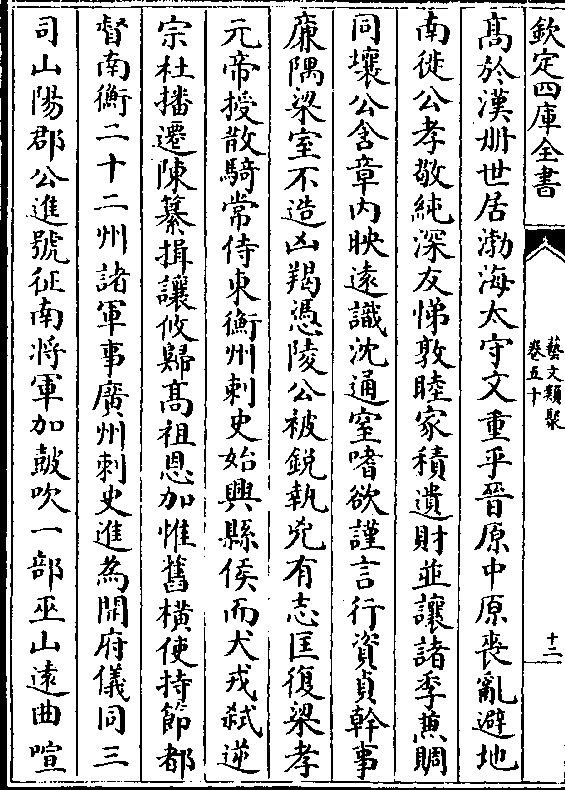 欽定四庫全書
藝文類聚
卷五十
十二
高於漢冊世居渤海太守文重乎晉原中原喪亂避地
南徙公孝敬純深友悌敦睦家積遺財並讓諸季蕉賙
同壤公含章內映遠識沈通窒嗜欲謹言行資貞幹事
亷隅梁室不造凶羯憑陵公被鋭執兊有志匡復梁孝
元帝授散騎常侍東衡州刺史始興縣侯而犬戎弑逆
宗杜播遷陳纂揖讓攸歸髙祖恩加惟舊橫使持節都
督南衡二十二州諸軍事廣州刺史進為開府儀同三
司山陽郡公進號征南將軍加皷吹一部巫山遠曲喧